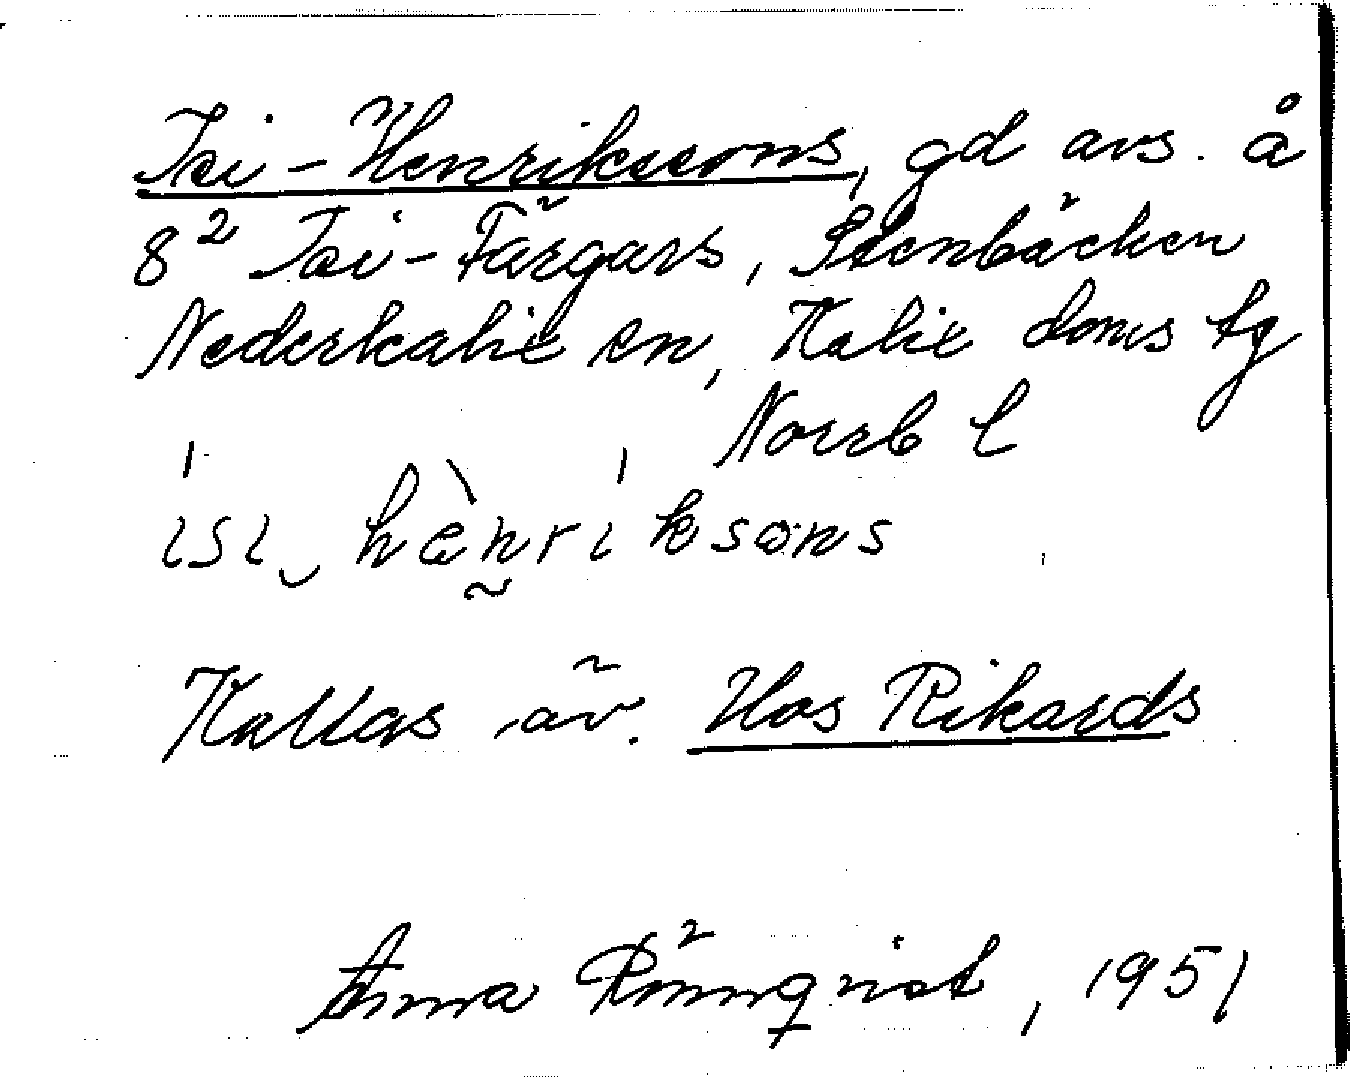 Isi-Henriksons, gd avs. å
8² Isi-Färgars, Stenbäcken
Nederkalix sn, Kalix doms tg
Norrb l
isi‿ hènriksons
Kallas äv. Hos Rikards
Anna Rönnqvist, 1951